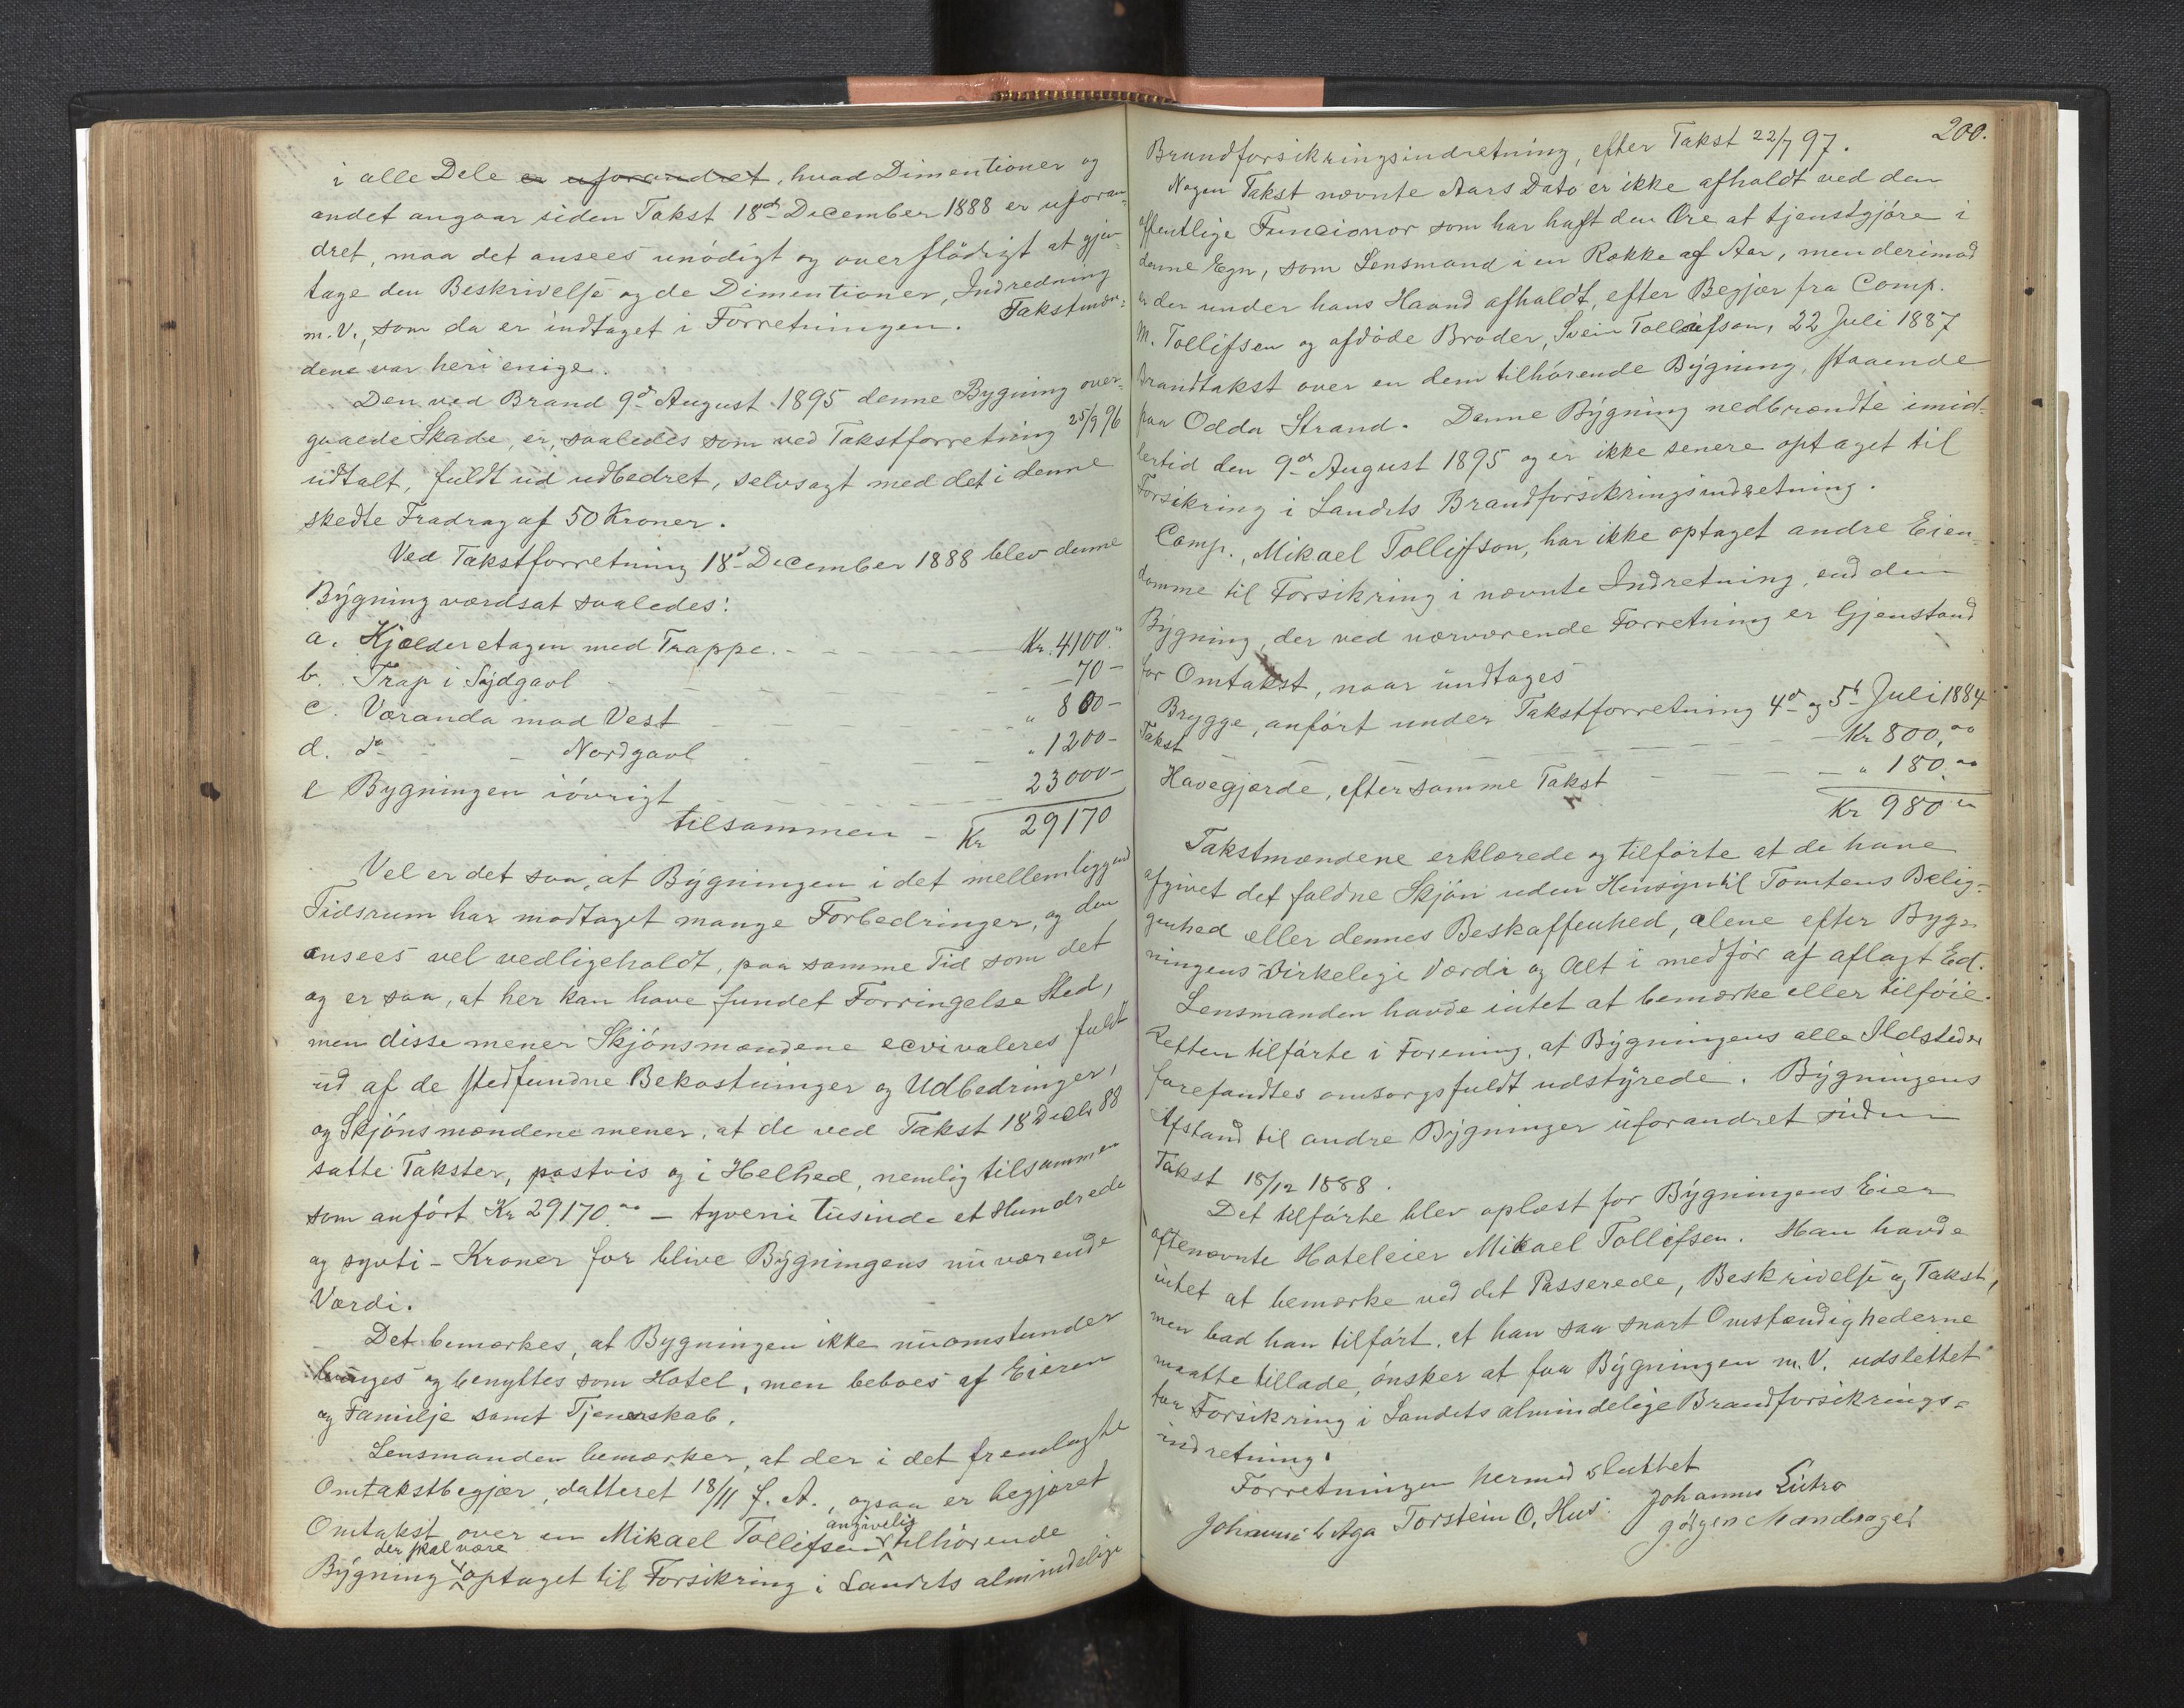 i alle Dele er uforandret, hvad Dimentioner og
andet angaar siden Takst 18d December 1888 er uforan-
dret, maa det ansees unödigt og overflödigt at gjen-
tage den Beskrivelse og de Dimentioner, Indredning
m.V., som da er indtaget i Forretningen. Takstmæn-
dene var heri enige.
Den ved Brand 9d August 1895 denne Bygning over-
gaaede Skade, er, saaledes som ved Takstforretning 25/9 96
udtalt, fuldt ud udbedret, selvsagt med det i denne
skedte Fradrag af 50 Kroner.
Ved Takstforretning 18d December 1888 blev denne
Bygning værdsat saaledes:
a. Kjælderetagen med Trappe. Kr. 4100."
b. Trap i Sydgavl - 70 -
c. Væranda mod Vest " 800 -
d. do - Nordgavl " 1200 -
e Bygningen iövrigt 23000 -
tilsammen - Kr 29170
Vel er det saa, at Bygningen i det mellemliggend
Tidsrum har modtaget mange Forbedringer, og den
ansees vel vedligeholdt, paa samme Tid som det
og er saa, at her kan have fundet Forringelse Sted,
men disse mener Skjönsmændene ecvivaleres fuldt
ud af de stedfundne Bekostninger og Udbedringer,
og Skjönsmændene mener, at de ved Takst 18 Decbr 88
satte Takster, postvis og i Helhed, nemlig tilsammen
som anfört Kr 29170.00 - tyveni tusinde et Hundrede
og sytti - Kroner for blive Bygningens nuværende
Værdi.
Det bemærkes, at Bygningen ikke nuomstunder
bruges og benyttes som Hotel, men beboes af Eieren
og Familje samt Tjenerskab.
Lensmanden bemærker, at der i det fremlagte
Omtakstbegjær, datteret 18/11 f. A., ogsaa er begjæret
Omtakst over en Mikael Tollefsen angivelig tilhörende
Bygning der skal være optaget til Forsikring i Landets almindelige
200.
Brandforsikringsindretning, efter Takst 22/7 97.
Nogen Takst nævnte Aars Dato er ikke afholdt ved den
offentlige Funcionær som har haft den Ære at tjenstgjöre i
denne Egn, som Lensmand i en Række af Aar, men derimod
er der under hans Haand afholdt, efter Begjær fra Comp.
M. Tollefsen og afdöde Broder, Svein Tollefson, 22 Juli 1887
Brandtakst over en dem tilhörende Bygning, staaende
paa Odda Strand. Denne Bygning nedbrændte imid-
lertid den 9d August 1895 og er ikke senere optaget til
Forsikring i Landets Brandforsikringsindretning.
Comp., Mikael Tollefson, har ikke optaget andre Eien-
domme til Forsikring i nævnte Indretning, end den
Bygning, der ved nærværende Forretning er Gjenstand
for Omtakst, naar undtages
Brygge, anfört under Takstforretning 4d og 5t Juli 1884
Takst Kr 800,00
Havegjærde, efter samme Takst - " 180.00
Kr 980 "
Takstmændene erklærede og tilförte at de have
afgivet det faldne Skjön uden Hensyn til Tomtens Belig-
genhed eller dennes Beskaffenhed, alene efter Byg-
ningens virkelige Værdi og Alt i medför af aflagt Ed.
Lensmanden havde intet at bemærke eller tilföie.
Retten tilförte i Forening, at Bygningens alle Ildsteder
forefandtes omsorgsfuldt udstyrede. Bygningens
Afstand til andre Bygninger uforandret siden
Takst 18/12 1888.
Det tilförte blev oplæst for Bygningens Eier
oftenævnte Hoteleier Mikael Tollefsen. Han havde
intet at bemærke ved det Passerede, Beskrivelse og Takst,
men bad han tilfört, at han saa snart Omstændighederne
maatte tillade, önsker at faa Bygningen m.V. udslettet
for Forsikring i Landets almindelige Brandforsikrings-
indretning.
Forretningen hermed sluttet
Johannes L Aga Torstein O. Hus. Johannes Lutro
Jörgen Mandsager